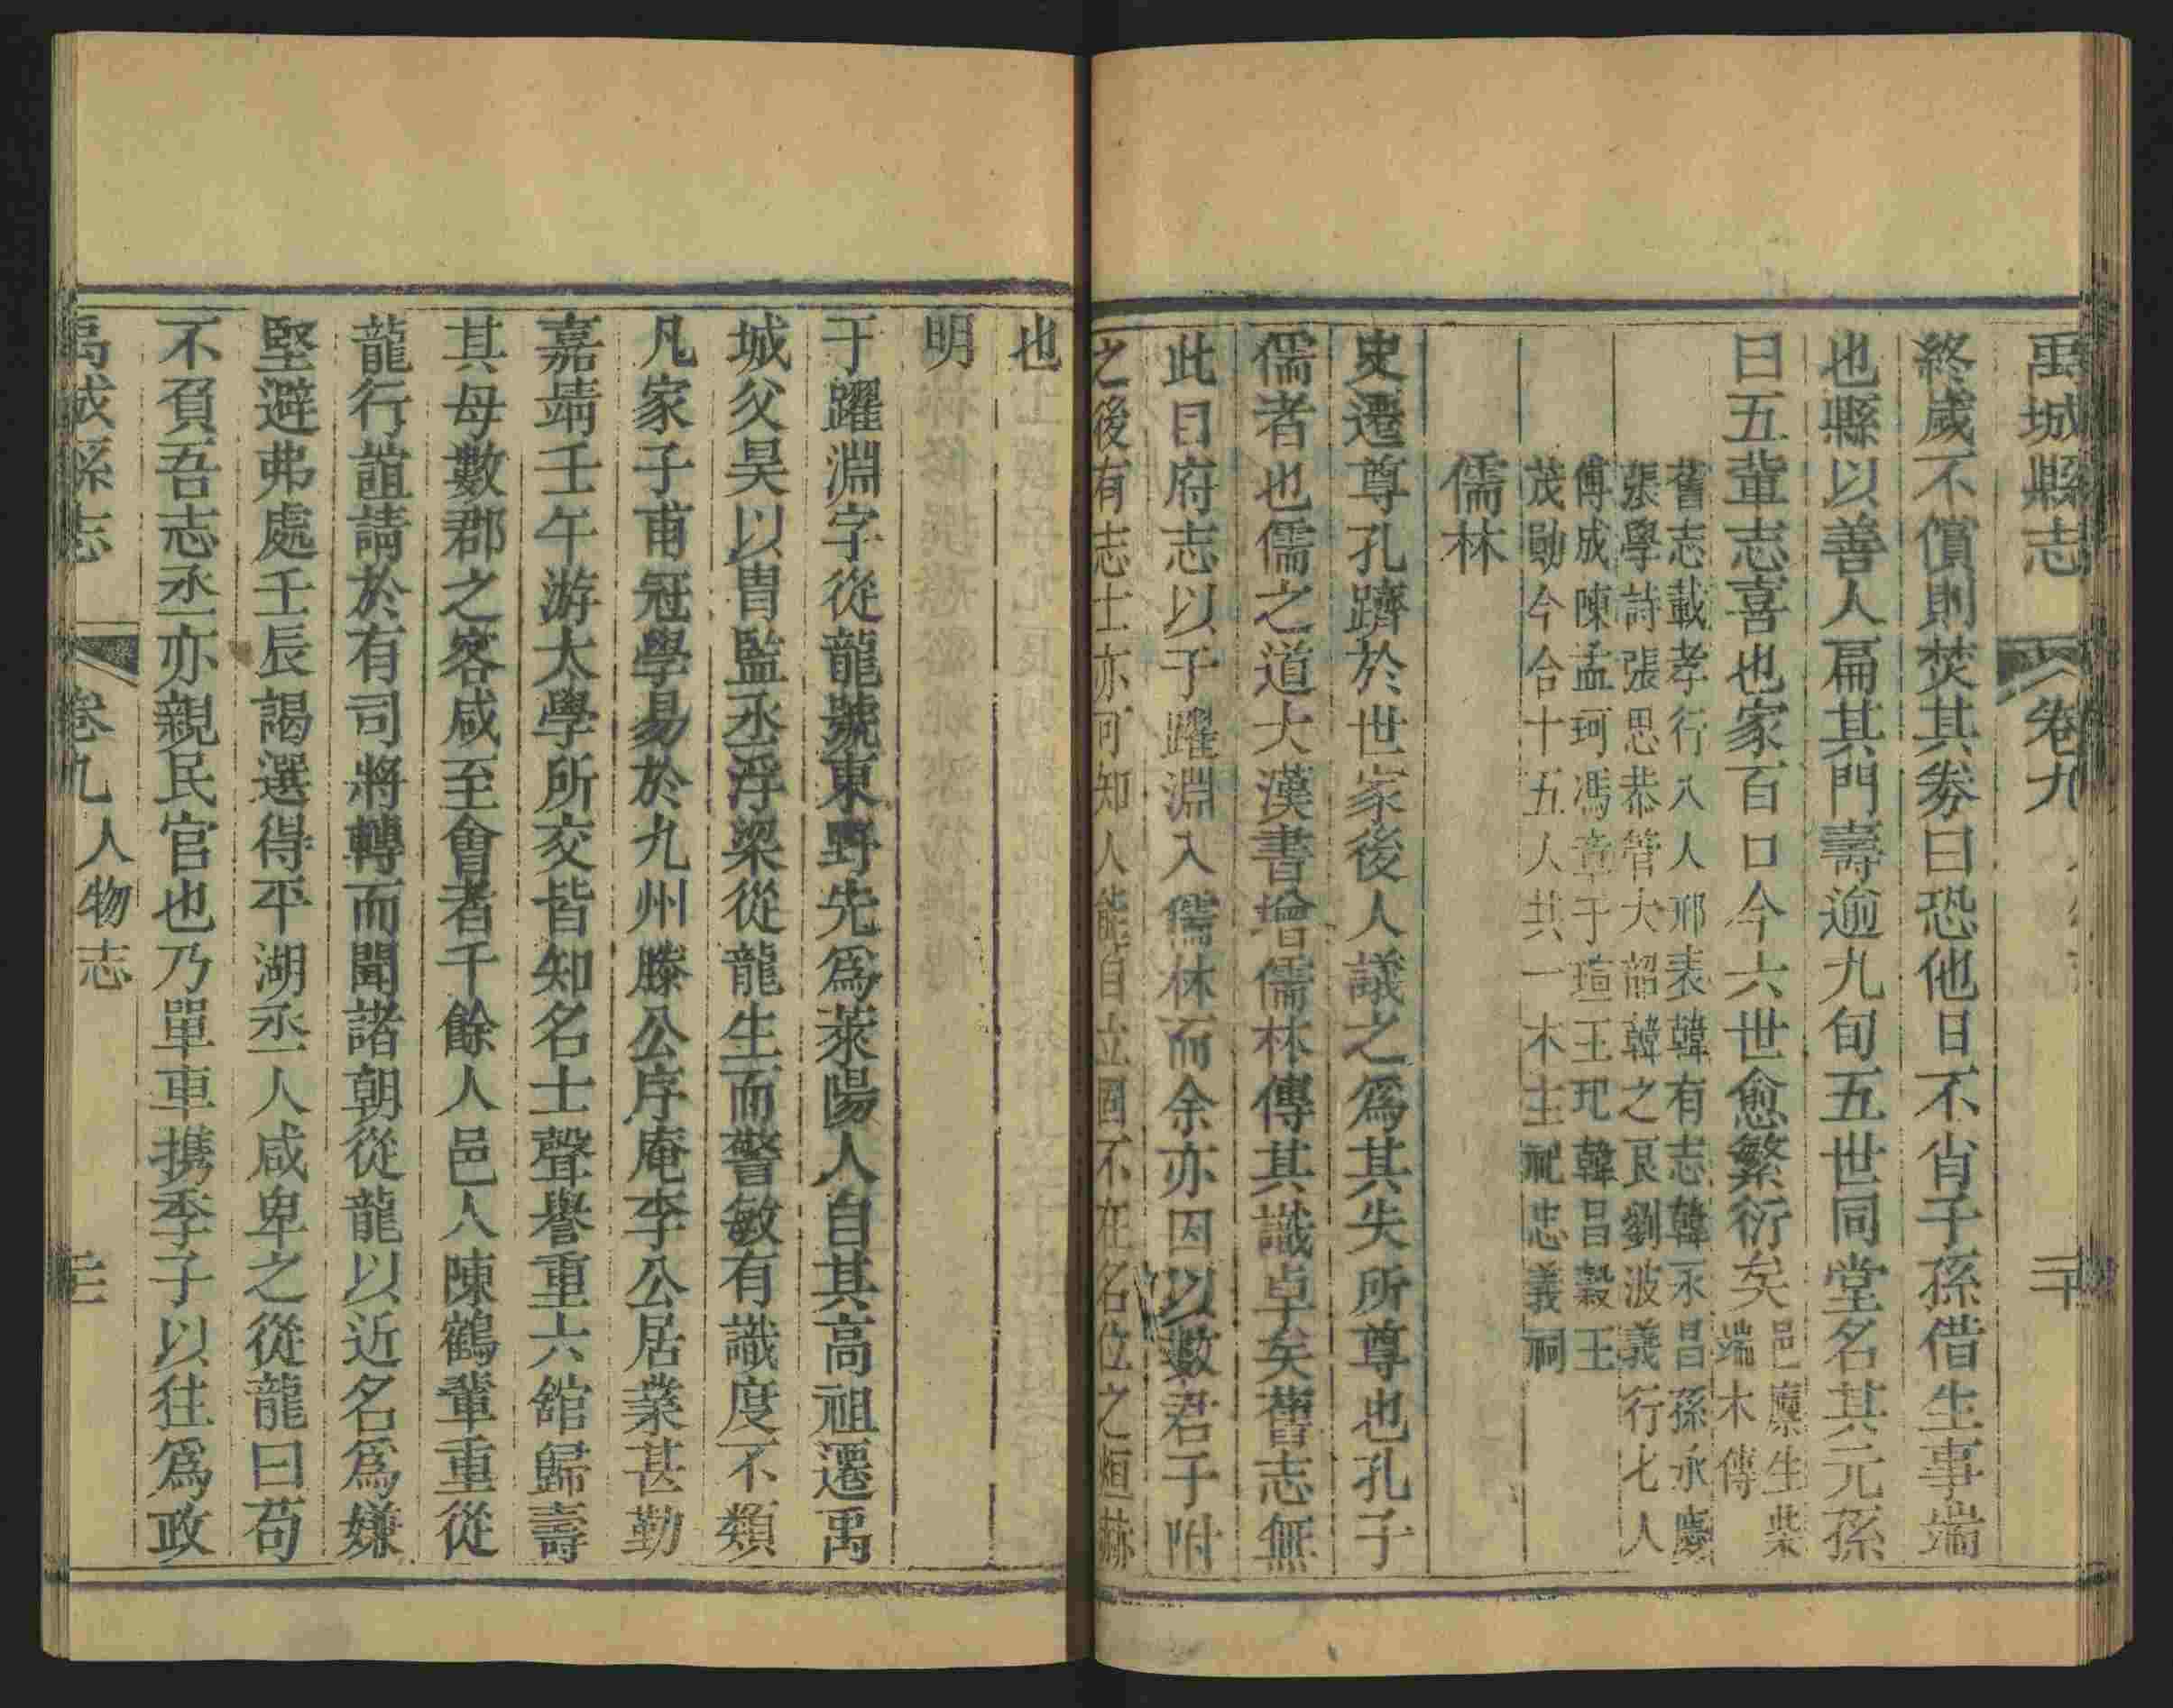 禹城縣志 卷九 二十
終歲不償則焚其劵曰恐他日不肖子孫借生事端
也縣以善人扁其門壽逾九旬五世同堂名其元孫
曰五輩志喜也家百口今六世愈繁衍矣邑廩生柴端木傳
舊志載孝行八人邢表韓有志韓永昌孫永慶
張學詩張思恭管大韶韓之良劉波義行七人
傅成陳孟珂馮章于瑄王玘韓昌榖王
茂勛今合十五人共一木主祀忠義祠
儒林
史遷尊孔躋於世家後人議之爲其失所尊也孔子
儒者也儒之道大漢書增儒林傳其識卓矣舊志無
此目府志以于躍淵入儒林而余亦因以數君子附
之後有志士亦可知人能自立固不在名位之烜赫
也
明
于躍淵字從龍號東野先爲萊陽人自其高祖遷禹
城父昊以胄監丞浮梁從龍生而警敏有識度不類
凡家子甫冠學易於九州滕公序庵李公居業甚勤
嘉靖壬午游太學所交皆知名士聲譽重六舘歸壽
其母數郡之客咸至會者千餘人邑人陳鶴輩重從
龍行誼請於有司將轉而聞諸朝從龍以近名爲嫌
堅避弗處壬辰謁選得平湖丞人咸卑之從龍曰苟
不負吾志丞亦親民官也乃單車携季子以往爲政
禹城縣志 卷九 人物志